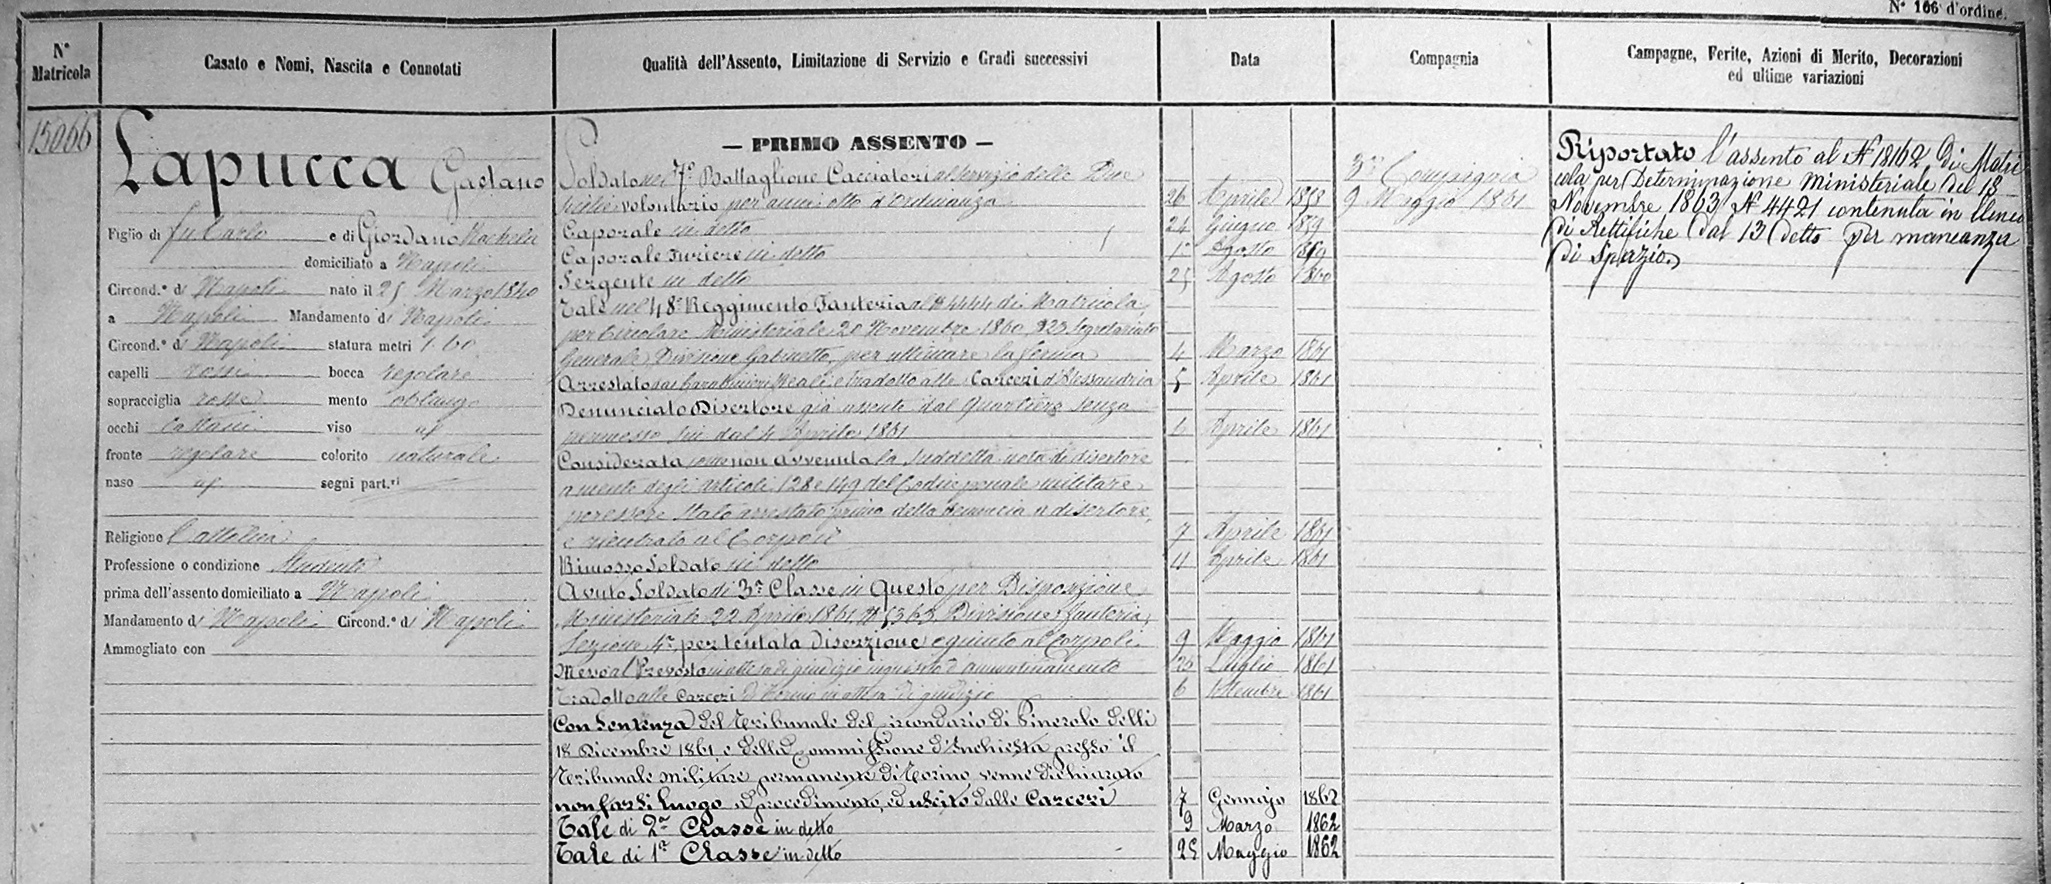 N° 106 d'ordine.
N° Matricola
Casato e Nomi, Nascita e Connotati
Qualità dell'Assento, Limitazione di Servizio e Gradi successivi
Data
Compagnia
Campagne, Ferite, Azioni di Merito, Decorazioni
ed ultime variazioni
15066
Lapucca Gaetano
Figlio di fu Carlo e di Giordano Rachele
domiciliato a Napoli
Circond.° di Napoli nato il 25 Marzo 1840
a Napoli Mandamento di Napoli
Circond.° di Napoli statura metri 1.60
capelli rossi bocca regolare
sopracciglia rosse mento oblungo
occhi castani viso
fronte regolare colorito naturale
naso segni part.ri
Religione Cattolica
Professione o condizione Studente
prima dell'assento domiciliato a Napoli
Mandamento di Napoli Circond.° di Napoli
Ammogliato con
— PRIMO ASSENTO —
Soldato nel 7° Battaglione Cacciatori al servizio delle Due
Sicilie volontario per anni otto d'ordinanza 26 Aprile 1858
Caporale in detto 24 Giugno 1859
Caporale Furiere in detto 1° Agosto 1859
Sergente in detto 25 Agosto 1860
Tale nel 48° Reggimento Fanteria al N° 4444 di Matricola,
per Circolare Ministeriale 20 Novembre 1860 N° 23 Segretariato
Generale, Divisione Gabinetto, per ultimare la ferma 4 Marzo 1861
Arrestato dai Carabinieri Reali e tradotto alle Carceri d'Alessandria 5 Aprile 1861
Denunciato Disertore già assente dal Quartiere senza
permesso sin dal 4 Aprile 1861 6 Aprile 1861
Considerata come non avvenuta la suddetta nota di disertore
a mente degli articoli 128 e 149 del Codice penale militare
per essere stato arrestato prima della denuncia a disertore,
e rientrato al Corpo 7 Aprile 1861
Rimosso Soldato in detto 11 Aprile 1861
Avuto Soldato di 3a Classe in Questo per Disposizione
Ministeriale 22 Aprile 1861 N° 5363 Divisione Fanteria,
Sezione 4a, per tentata diserzione, e giunto al Corpo li 9 Maggio 1861
Messo al Prevosto in attesa di giudizio d'ammutinamento 20 Luglio 1861
Tradotto alle Carceri di Torino in attesa di giudizio 6 1861
Con Sentenza del Tribunale del Circondario di Pinerolo delli
18 Dicembre 1861, e della Commissione d'Inchiesta presso il
Tribunale militare permanente di Torino venne dichiarato
non farsi luogo a procedimento, ed uscito dalle Carceri 7 Gennajo 1862
Tale di 2a Classe in detto 9 Marzo 1862
Tale di 1a Classe in detto 25 Maggio 1862
3a Compagnia
9 Maggio 1861
Riportato l'assento al N° 18162 di Matri
cola per Determinazione Ministeriale del 18
Novembre 1863 N° 4421 contenuta in Elenco
di Rettifiche dal 13 detto per mancanza
di Spazio